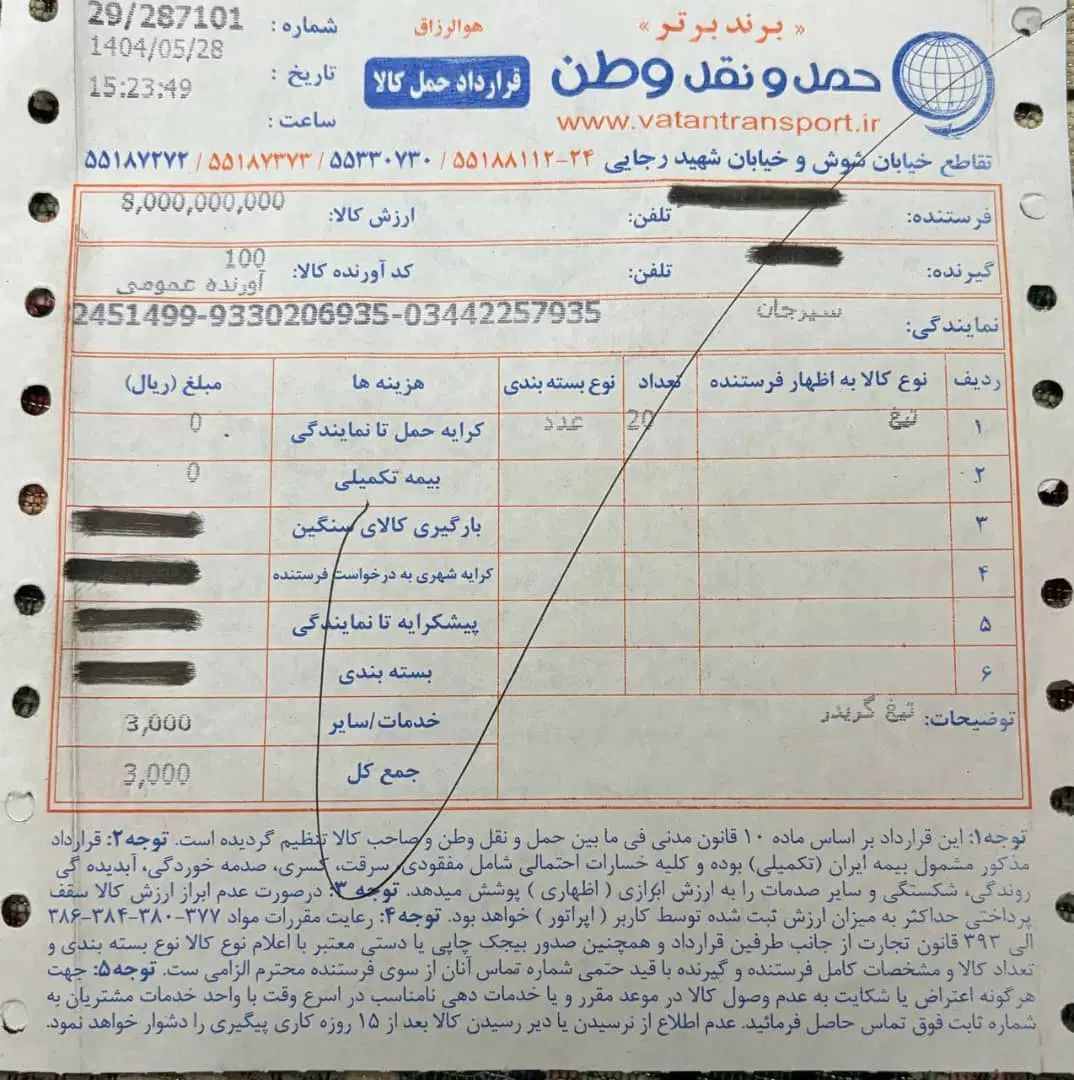 « برند برتر »
هوالرزاق
شماره : 29/287101
حمل و نقل وطن
قرارداد حمل کالا
تاریخ : 1404/05/28
ساعت : 15:23:49
www.vatantransport.ir
تقاطع خیابان شوش و خیابان شهید رجایی ۲۴-۵۵۱۸۸۱۱۲ / ۵۵۳۳۰۷۳۰ / ۵۵۱۸۷۳۷۳ / ۵۵۱۸۷۲۷۲
فرستنده: تلفن: ارزش کالا: 8,000,000,000
گیرنده: تلفن: کد آورنده کالا: 100
آورنده عمومی
نمایندگی: سیرجان 2451499-9330206935-03442257935
ردیف نوع کالا به اظهار فرستنده تعداد نوع بسته بندی هزینه ها مبلغ (ریال)
۱ تیغ 20 عدد کرایه حمل تا نمایندگی 0
۲ بیمه تکمیلی 0
۳ بارگیری کالای سنگین
۴ کرایه شهری به درخواست فرستنده
۵ پیشکرایه تا نمایندگی
۶ بسته بندی
توضیحات: تیغ گریدر خدمات/سایر 3,000
جمع کل 3,000
توجه۱: این قرارداد بر اساس ماده ۱۰ قانون مدنی فی ما بین حمل و نقل وطن و صاحب کالا تنظیم گردیده است. توجه۲: قرارداد
مذکور مشمول بیمه ایران (تکمیلی) بوده و کلیه خسارات احتمالی شامل مفقودی، سرقت، کسری، صدمه خوردگی، آبدیده گی
روندگی، شکستگی و سایر صدمات را به ارزش ابرازی ( اظهاری ) پوشش میدهد. توجه ۳: درصورت عدم ابراز ارزش کالا سقف
پرداختی حداکثر به میزان ارزش ثبت شده توسط کاربر ( اپراتور ) خواهد بود. توجه۴: رعایت مقررات مواد ۳۷۷-۳۸۰-۳۸۴-۳۸۶
الی ۳۹۳ قانون تجارت از جانب طرفین قرارداد و همچنین صدور بیجک چاپی یا دستی معتبر با اعلام نوع کالا نوع بسته بندی و
تعداد کالا و مشخصات کامل فرستنده و گیرنده با قید حتمی شماره تماس آنان از سوی فرستنده محترم الزامی ست. توجه۵: جهت
هرگونه اعتراض یا شکایت به عدم وصول کالا در موعد مقرر و یا خدمات دهی نامناسب در اسرع وقت با واحد خدمات مشتریان به
شماره ثابت فوق تماس حاصل فرمائید. عدم اطلاع از نرسیدن یا دیر رسیدن کالا بعد از ۱۵ روزه کاری پیگیری را دشوار خواهد نمود.